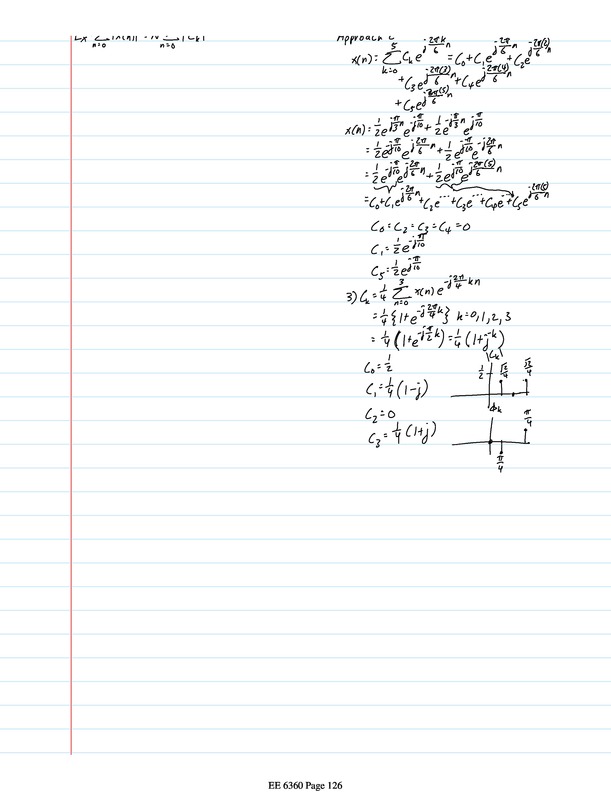 Ex Σ_{n=0} |x(n)|² = N Σ_{n=0} |C_k|
Approach 2
x(n) = Σ_{k=0}^{5} C_k e^{j 2πk/6 n} = C_0 + C_1 e^{j 2π/6 n} + C_2 e^{j 2π(2)/6 n}
+ C_3 e^{j 2π(3)/6 n} + C_4 e^{j 2π(4)/6 n}
+ C_5 e^{j 2π(5)/6 n}
x(n) = 1/2 e^{j π/3 n} e^{-j π/10} + 1/2 e^{-j π/3 n} e^{j π/10}
= 1/2 e^{-j π/10} e^{j 2π/6 n} + 1/2 e^{j π/10} e^{-j 2π/6 n}
= 1/2 e^{-j π/10} e^{j 2π/6 n} + 1/2 e^{j π/10} e^{j 2π(5)/6 n}
= C_0 + C_1 e^{j 2π/6 n} + C_2 e^{...} + C_3 e^{...} + C_4 e^{...} + C_5 e^{j 2π(5)/6 n}
C_0 = C_2 = C_3 = C_4 = 0
C_1 = 1/2 e^{-j π/10}
C_5 = 1/2 e^{j π/10}
3) C_k = 1/4 Σ_{n=0}^{3} x(n) e^{-j 2π/4 kn}
= 1/4 {1 + e^{-j 2π/4 k}} k = 0, 1, 2, 3
= 1/4 (1 + e^{-j π/2 k}) = 1/4 (1 + j^{-k})
|C_k|
C_0 = 1/2
1/2 √2/4 √2/4
C_1 = 1/4 (1 - j)
C_2 = 0
ϕ_k
π/4
C_3 = 1/4 (1 + j)
π/4
EE 6360 Page 126